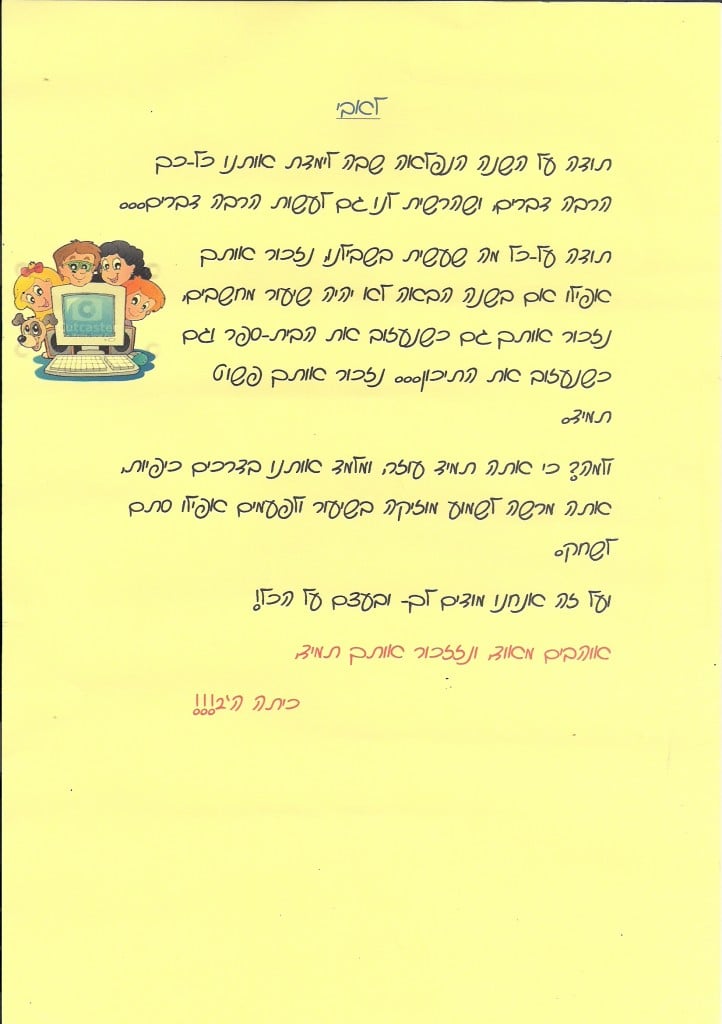 לאובי
תודה על השנה הנפלאה שבה לימדת אותנו כל-כך
הרבה דברים, ושהרשית לנו גם לעשות הרבה דברים...
תודה על-כל מה שעשית בשבילנו, נזכור אותך
אפילו אם בשנה הבאה לא יהיה שיעור מחשבים,
נזכור אותך גם כשנעזוב את הבית-ספר וגם
כשנעזוב את התיכון... נזכור אותך פשוט
תמיד.
ולמה? כי אתה תמיד עוזר, ומלמד אותנו בדרכים כיפיות,
אתה מרשה לשמוע מוזיקה בשיעור ולפעמים אפילו סתם
לשחק.
ועל זה אנחנו מודים לך- ובעצם על הכל!
אוהבים מאוד, ונזזכור אותך תמיד,
כיתה ה'ב!!!
cutcaster